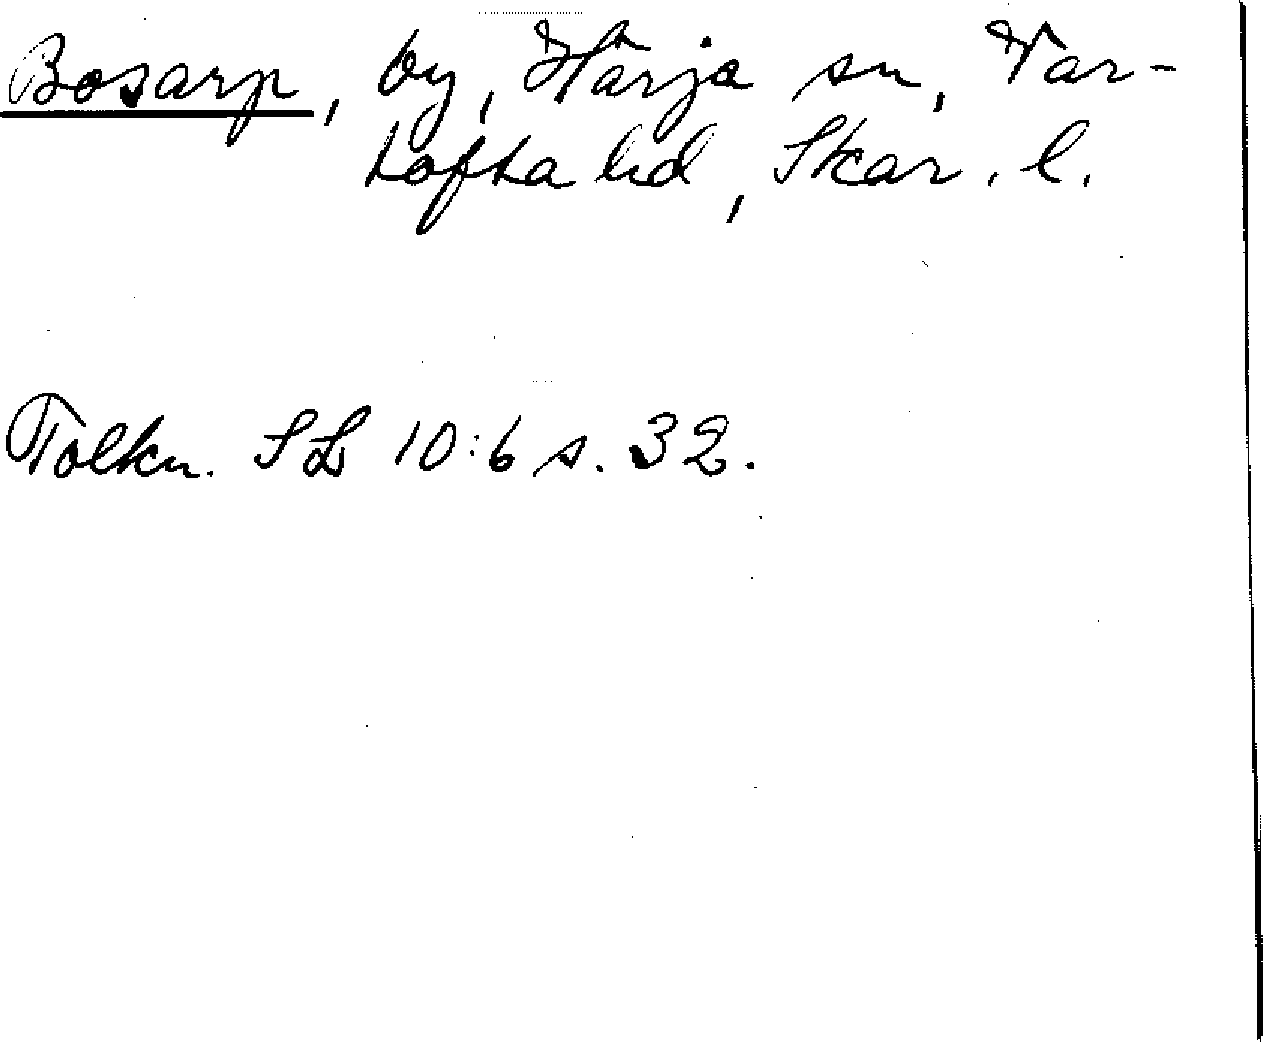 Bosarp, by, Härja sn, Var-
tofta hd, Skar. l.
Tolkn. SL 10:6 s. 32.